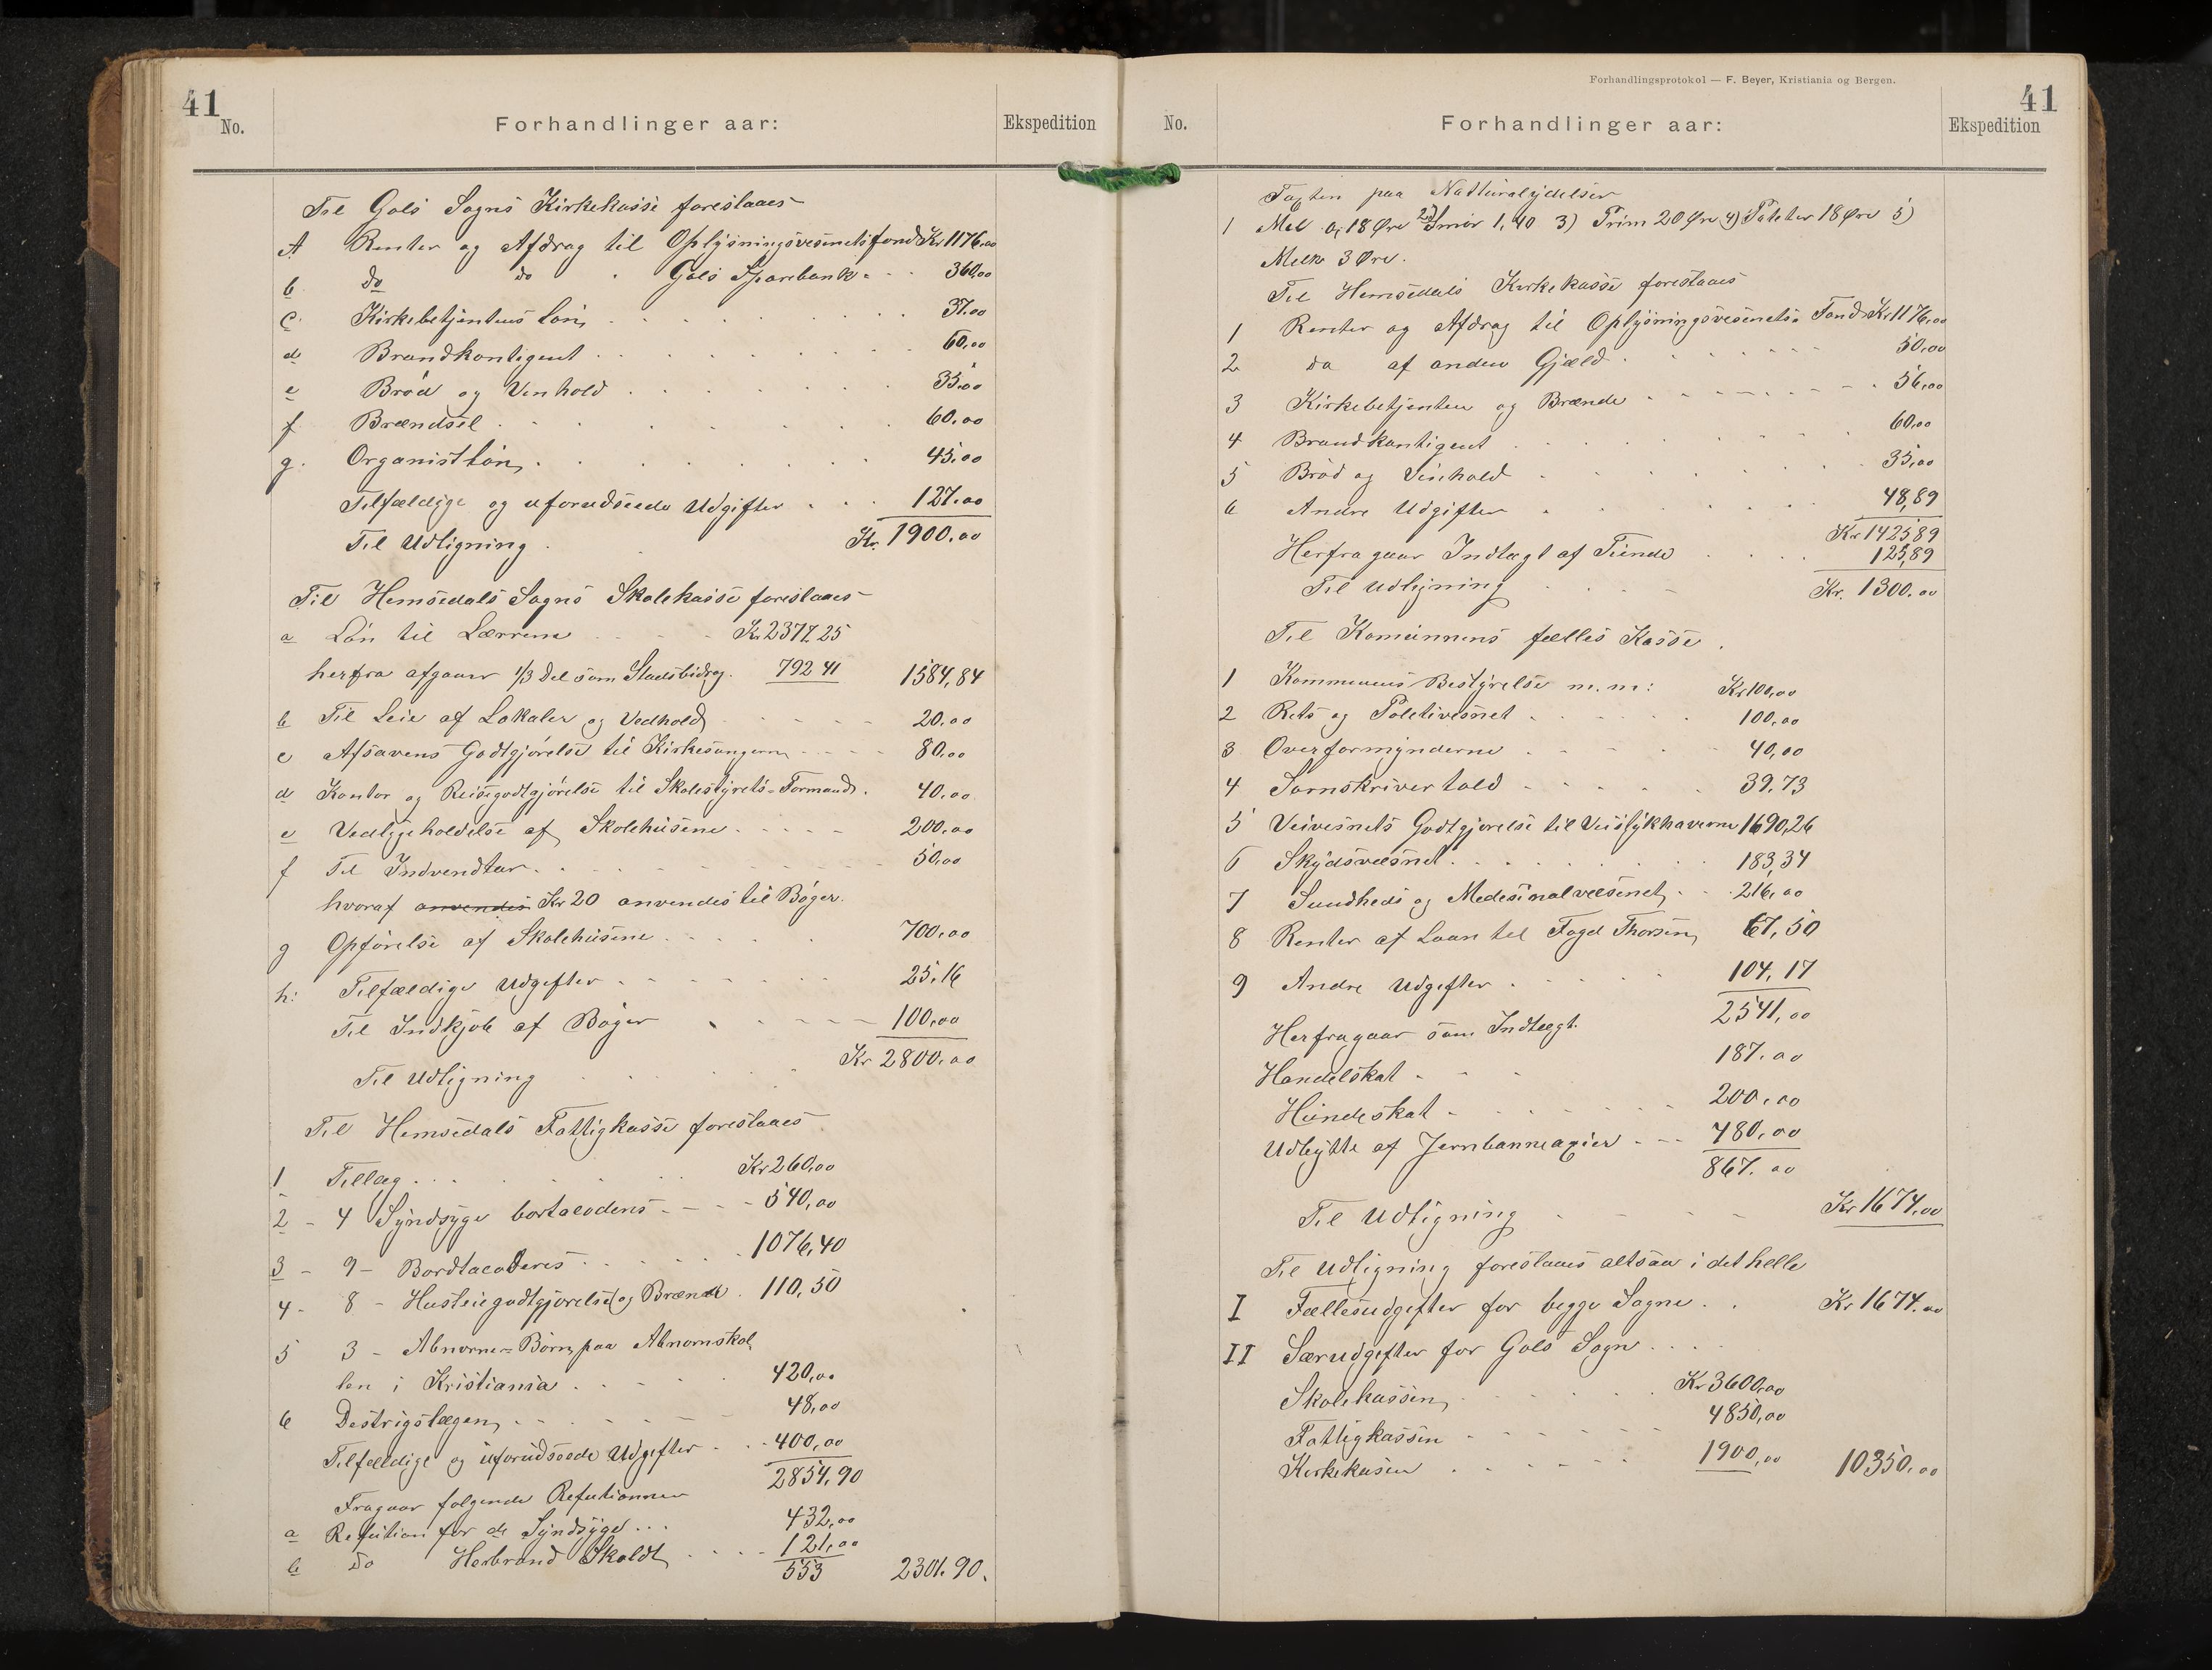 41
No.
Forhandlinger aar:
Ekspedition
Til Gols Sogns Kirkekasse foreslaaes
A Renter og Afdrag til Oplysningsvesenets fond Kr 1176,00
b do do Gols Sparebank 360,00
c. Kirkebetjentens Løn 37.00
d Brandkontigent 60,00
e Brød og Vinhold 35,00
f Brændsel 60,00
g. Organist Løn 45,00
Tilfældige og uforudseede Udgifter 127.00
Til Udligning Kr. 1900.00
Til Hemsedals Sogns Skolekasse foreslaaes
a Løn til Lærerne Kr 2377.25
herfra afgaaer 1/3 Del som Stadsbidrag 792 41 1584,84
b Til Leie af Lokaler og Vedhold 20,00
c Afsavens Godtgjørelse til Kirkesangeren 80,00
d Kontor og Reisegodtgjørelse til Skolestyrets-Formand 40,00
e Vedligeholdelse af Skolehusene 200,00
f Til Indvendtar 50,00
hvoraf anvendes Kr 20 anvendes til Bøger.
g Opførelse af Skolehusene 700,00
h: Tilfældige Udgifter 25,16
Til Indkjøb af Bøger 100,00
Til Udligning Kr 2800,00
Til Hemsedals Fattigkasse foreslaaes
1 Tillæg Kr 260,00
2 - 4 Syndsyge bortacodens 540,00
3 - 9 - Bordtacoderes 1076,40
4 - 8 - Husleiegodtgjørelse og Brænde 110,50
5 3 - Abnorme-Børn paa Abnomskol
len i Kristiania 420,00
6 Destrigslægen 48,00
Tilfældige og uforudseede Udgifter 400,00
2854,90
Fragaar følgende Refutionner
a Refution for de Syndsyge 432,00
b Do Herbrand Skoldt 121,00
553 2301.90.
Forhandlingsprotokol — F. Beyer, Kristiania og Bergen.
41
No.
Forhandlinger aar:
Ekspedition
Taxten paa Natturalydelser
1 Mel a; 18 Øre 2) Smør 1,40 3) Prim 20 Øre 4) Poteter 18 Øre 5)
Melk 3 Øre.
Til Hemsedals Kirkekasse foreslaaes
1 Renter og Afdrag til Oplysningsvesenets Fond Kr 1176,00
2 do af anden Gjæld 50,00
3 Kirkebetjenten og Brænde 56,00
4 Brandkontigent 60,00
5 Brød og Vinhold 35,00
6 Andre Udgifter 48,89
Kr 1425,89
Herfra gaar Indtægt af Tiende 125,89
Til Udligning Kr. 1300.00
Til Komunnens fælles Kasse.
1 Kommunens Bestyrelse m.m: Kr 100,00
2 Rets og Politivesnet 100,00
3 Overformynderne 40,00
4 Sornskriver told 39.73
5 Veivesnets Godtgjørelse til Veistykhaverne 1690,26
6 Skydsvæsnet 183,34
7 Sundheds og Medesinalvæsenet 216,00
8 Renter af Laan til Foged Thorsen 67,50
9 Andre Udgifter 104,17
2541,00
Herfragaar som Indtægt.
Handelskat 187.00
Hundeskat 200,00
Udbytte af Jernbanneaxier 480,00
867.00
Til Udligning Kr 1674,00
Til Udligning foreslaaes altsaa i det helle
I Fællesudgifter for begge Sogne Kr 1674.00
II Særudgifter for Gols Sogn
Skolekassen Kr 3600,00
Fattigkassen 4850,00
Kirkekasen 1900,00 10350,00